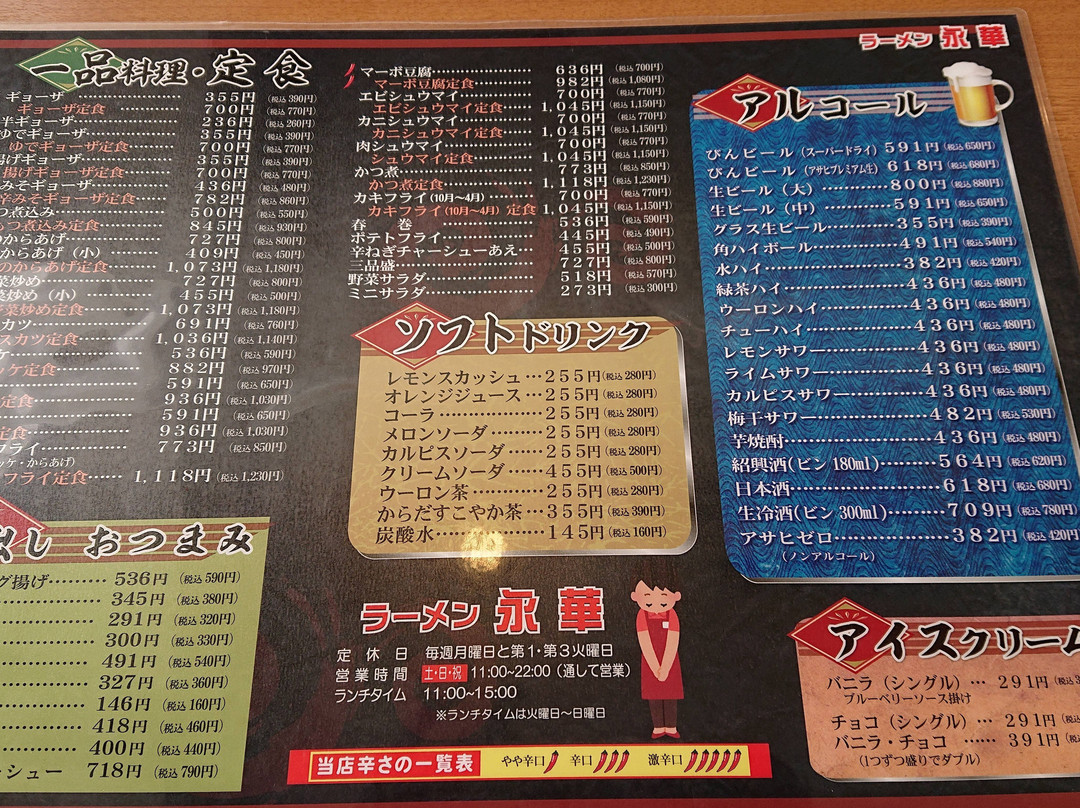 ラーメン 永華
一品料理・定食
ギョーザ 355円 (税込390円)
ギョーザ定食 700円 (税込770円)
半ギョーザ 236円 (税込260円)
ゆでギョーザ 355円 (税込390円)
ゆでギョーザ定食 700円 (税込770円)
揚げギョーザ 355円 (税込390円)
揚げギョーザ定食 700円 (税込770円)
みそギョーザ 436円 (税込480円)
辛みそギョーザ定食 782円 (税込860円)
つ煮込み 500円 (税込550円)
つ煮込み定食 845円 (税込930円)
のからあげ 727円 (税込800円)
からあげ(小) 409円 (税込450円)
のからあげ定食 1,073円 (税込1,180円)
菜炒め 727円 (税込800円)
菜炒め(小) 455円 (税込500円)
菜炒め定食 1,073円 (税込1,180円)
カツ 691円 (税込760円)
スカツ定食 1,036円 (税込1,140円)
ケ 536円 (税込590円)
ッケ定食 882円 (税込970円)
591円 (税込650円)
定食 936円 (税込1,030円)
591円 (税込650円)
定食 936円 (税込1,030円)
フライ 773円 (税込850円)
ッケ・からあげ)
フライ定食 1,118円 (税込1,230円)
マーボ豆腐 636円 (税込700円)
マーボ豆腐定食 982円 (税込1,080円)
エビシュウマイ 700円 (税込770円)
エビシュウマイ定食 1,045円 (税込1,150円)
カニシュウマイ 700円 (税込770円)
カニシュウマイ定食 1,045円 (税込1,150円)
肉シュウマイ 700円 (税込770円)
シュウマイ定食 1,045円 (税込1,150円)
かつ煮 773円 (税込850円)
かつ煮定食 1,118円 (税込1,230円)
カキフライ(10月〜4月) 700円 (税込770円)
カキフライ(10月〜4月) 定食 1,045円 (税込1,150円)
春 巻 536円 (税込590円)
ポテトフライ 445円 (税込490円)
辛ねぎチャーシューあえ 455円 (税込500円)
三品盛 727円 (税込800円)
野菜サラダ 518円 (税込570円)
ミニサラダ 273円 (税込300円)
アルコール
びんビール(スーパードライ) 591円 (税込650円)
びんビール(アサヒプレミアム生) 618円 (税込680円)
生ビール(大) 800円 (税込880円)
生ビール(中) 591円 (税込650円)
グラス生ビール 355円 (税込390円)
角ハイボール 491円 (税込540円)
水ハイ 382円 (税込420円)
緑茶ハイ 436円 (税込480円)
ウーロンハイ 436円 (税込480円)
チューハイ 436円 (税込480円)
レモンサワー 436円 (税込480円)
ライムサワー 436円 (税込480円)
カルピスサワー 436円 (税込480円)
梅干サワー 482円 (税込530円)
芋焼酎 436円 (税込480円)
紹興酒(ビン180ml) 564円 (税込620円)
日本酒 618円 (税込680円)
生冷酒(ビン300ml) 709円 (税込780円)
アサヒゼロ 382円 (税込420円
(ノンアルコール)
ソフトドリンク
レモンスカッシュ…255円(税込280円)
オレンジジュース…255円(税込280円)
コーラ…255円(税込280円)
メロンソーダ…255円(税込280円)
カルピスソーダ…255円(税込280円)
クリームソーダ…455円(税込500円)
ウーロン茶…255円(税込280円)
からだすこやか茶…355円(税込390円)
炭酸水…145円(税込160円)
し おつまみ
グ揚げ 536円 (税込590円)
345円 (税込380円)
291円 (税込320円)
300円 (税込330円)
491円 (税込540円)
327円 (税込360円)
146円 (税込160円)
418円 (税込460円)
400円 (税込440円)
シュー 718円 (税込790円)
ラーメン 永華
定休日 毎週月曜日と第1・第3火曜日
営業時間 土・日・祝 11:00~22:00(通して営業)
ランチタイム 11:00~15:00
※ランチタイムは火曜日〜日曜日
当店辛さの一覧表 やや辛口 辛口 激辛口
アイスクリーム
バニラ(シングル)… 291円 (税込
ブルーベリーソース掛け
チョコ(シングル)… 291円 (税込
バニラ・チョコ …… 391円 (税込
(1つずつ盛りでダブル)